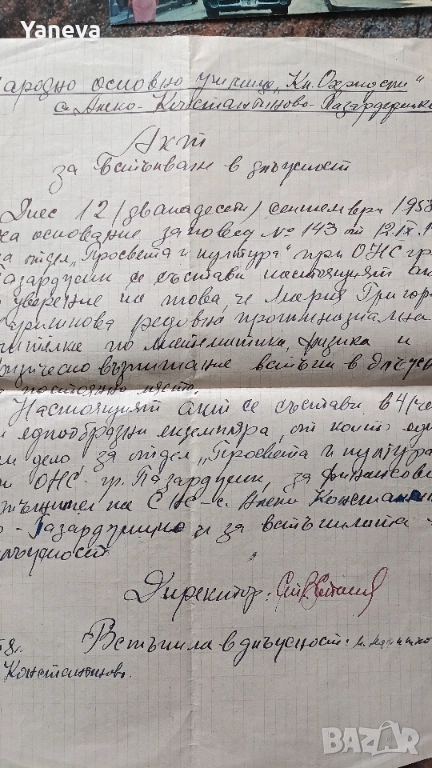 Yaneva
ародно основно училище „Кл. Охридски"
с. Алеко-Константиново-Пазарджишко
Акт
за встъпване в длъжност
Днес 12 /дванадесети/ септември 1958
на основание заповед № 143 от 12.IX.1
на отдел „Просвета и култура" при ОНС гр.
Пазарджик се състави настоящият ак
уверение на това че Мария Григор
редовна прогимназиална
чителка по математика, физика и
физическо възпитание встъпи в длъжн
постоянно място.
Настоящият акт се състави в 4 /че
и еднообразни екземпляра, от които еди
дело за отдел „Просвета и култура
ОНС гр. Пазарджик, за финансови
на СНС-с. Алеко Констан
о-Пазарджишко и за встъпилата
длъжност.
Директор:
58г. Встъпила в длъжност:
Константиново.
BAZAR